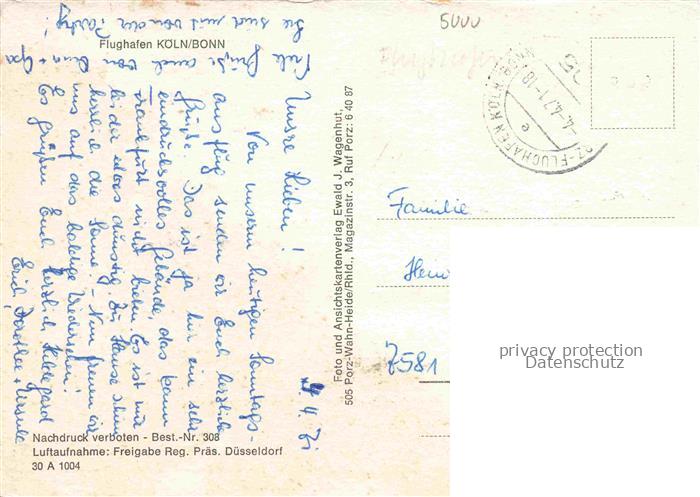 Flughafen KÖLN/BONN
4.4.71
Unsere Lieben!
Von unserem heutigen Sonntags-
ausflug senden wir Euch herzliche
Grüße. Das ist ja hier ein sehr
eindrucksvolles Gebäude, das kann
Frankfurt nicht bieten. Es ist nur
leider etwas dunstig. Zu Hause schien
herrlich die Sonne. - Nun freuen wir
uns auf das baldige Wiedersehen!
Es grüßen Euch herzlich Hildegard
Erich, Dorothee + Ursula
Viele Grüße auch von Oma + Opa
Sie sind mit von der Party!
Nachdruck verboten - Best.-Nr. 308
Luftaufnahme: Freigabe Reg. Präs. Düsseldorf
30 A 1004
Foto und Ansichtskartenverlag Ewald J. Wagenhut,
505 Porz-Wahn-Heide/Rhld., Magazinstr. 3, Ruf Porz: 6 40 87
5000
505 PORZ-FLUGHAFEN KÖLN
e
-4.4.71-18
Familie
Hein
7581
privacy protection
Datenschutz